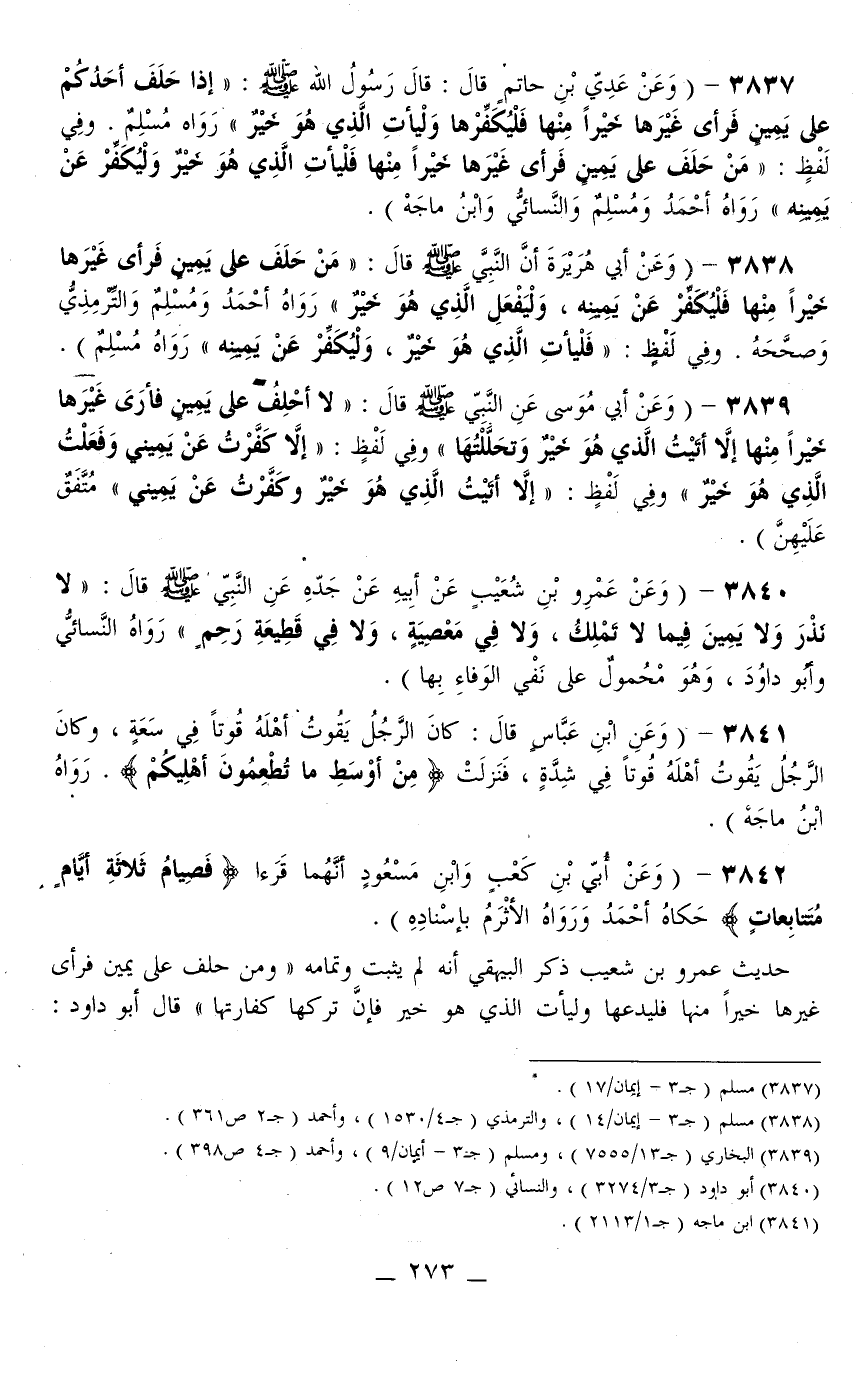 ٣٨٣٧ – ( وَعَنْ عَدِيّ بْنِ حاتمٍ قالَ : قالَ رَسُولُ الله ﷺ : « إذا حَلَفَ أحَدُكُمْ
على يَمِينٍ فَرأى غَيْرَها خَيْراً مِنْها فَلْيُكَفِّرْها وَلْيأتِ الَّذِي هُوَ خَيْرٌ » رَوَاه مُسْلِمٌ . وفِي
لَفْظٍ : « مَنْ حَلَفَ على يَمِينٍ فَرأى غَيْرَها خَيْراً مِنْها فَلْيأتِ الَّذِي هُوَ خَيْرٌ وَلْيُكَفِّرْ عَنْ
يَمِينِه » رَوَاهُ أحْمَدُ وَمُسْلِمٌ وَالنَّسائيُّ وَابْنُ ماجَهْ ) .
٣٨٣٨ – ( وَعَنْ أبي هُرَيْرَةَ أنَّ النَّبِيَّ ﷺ قالَ : « مَنْ حَلَفَ على يَمِينٍ فَرأى غَيْرَها
خَيْراً مِنْها فَلْيُكَفِّرْ عَنْ يَمِينِه ، وَلْيَفْعَلِ الَّذِي هُوَ خَيْرٌ » رَوَاهُ أحْمَدُ وَمُسْلِمٌ والتِّرْمِذِيُّ
وَصحَّحَهُ . وفِي لَفْظٍ : « فَلْيأتِ الَّذِي هُوَ خَيْرٌ ، وَلْيُكَفِّرْ عَنْ يَمِينِه » رَوَاهُ مُسْلِمٌ ) .
٣٨٣٩ – ( وَعَنْ أبي مُوَسى عَنِ النَّبِيّ ﷺ قالَ : « لا أحْلِفُ على يَمِينٍ فأرَى غَيْرَها
خَيْراً مِنْها إلَّا أتَيْتُ الَّذي هُوَ خَيْرٌ وَتحَلَّلْتُهَا » وفِي لَفْظٍ : « إلَّا كَفَّرْتُ عَنْ يَمِيني وَفَعَلْتُ
الَّذِي هُوَ خَيْرٌ » وفِي لَفْظٍ : « إلَّا أتَيْتُ الَّذِي هُوَ خَيْرٌ وكَفَّرْتُ عَنْ يَمِيني » مُتَّفَقٌ
عَلَيْهِنَّ ) .
٣٨٤٠ – ( وَعَنْ عَمْرِو بْنِ شُعَيْبٍ عَنْ أبيهِ عَنْ جَدّهِ عَنِ النَّبِيّ ﷺ قالَ : « لا
نَذْرَ وَلا يَمِينَ فِيما لا تَمْلِكُ ، وَلا فِي مَعْصِيَةٍ ، وَلا فِي قَطِيعَةِ رَحِمٍ » رَوَاهُ النَّسائيُّ
وأبُو داوُدَ ، وَهُوَ مْحُمولٌ على نَفْي الوَفاءِ بِها ) .
٣٨٤١ – ( وَعَنِ ابْنِ عَبَّاسٍ قالَ : كانَ الرَّجُلُ يَقُوتُ أهْلَهُ قُوتاً فِي سَعَةٍ ، وكانَ
الرَّجُلُ يَقُوتُ أهْلَهُ قُوتاً فِي شِدَّةٍ ، فَنَزلَتْ ﴿ مِنْ أوْسَطِ ما تُطْعِمُونَ أهْلِيكُمْ ﴾ . رَوَاهُ
ابْنُ ماجَهْ ) .
٣٨٤٢ – ( وَعَنْ أُبَيّ بْنِ كَعْبٍ وَابْنِ مَسْعُودٍ أنَّهُما قَرَءا ﴿ فَصِيامُ ثَلاثَةِ أيَّامٍ
مُتَتابِعاتٍ ﴾ حَكاهُ أحْمَدُ وَرَوَاهُ الأثْرَمُ بإسْنادِهِ ) .
حديث عمرو بن شعيب ذكر البيهقي أنه لم يثبت وتمامه « ومن حلف على يمين فرأى
غيرها خيراً منها فليدعها وليأت الذي هو خير فإنَّ تركها كفارتها » قال أبو داود :
(٣٨٣٧) مسلم ( جـ٣ – إيمان/١٧ ) .
(٣٨٣٨) مسلم ( جـ٣ – إيمان/١٤ ) ، والترمذي ( جـ٤/١٥٣٠ ) ، وأحمد ( جـ٢ ص٣٦١ ) .
(٣٨٣٩) البخاري ( جـ١٣/٧٥٥٥ ) ، ومسلم ( جـ٣ – أيمان/٩ ) ، وأحمد ( جـ٤ ص٣٩٨ ) .
(٣٨٤٠) أبو داود ( جـ٣/٣٢٧٤ ) ، والنسائي ( جـ٧ ص١٢ ) .
(٣٨٤١) ابن ماجه ( جـ١/٢١١٣ ) .
– ٢٧٣ –